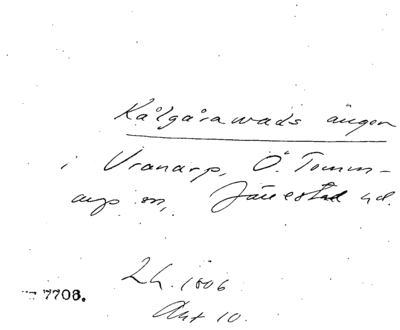 Kålgårawads ängen
i Vranarp, Ö. Tomm-
arp sn, Järrestad hd.
Lh. 1806
Akt 10.
7706.